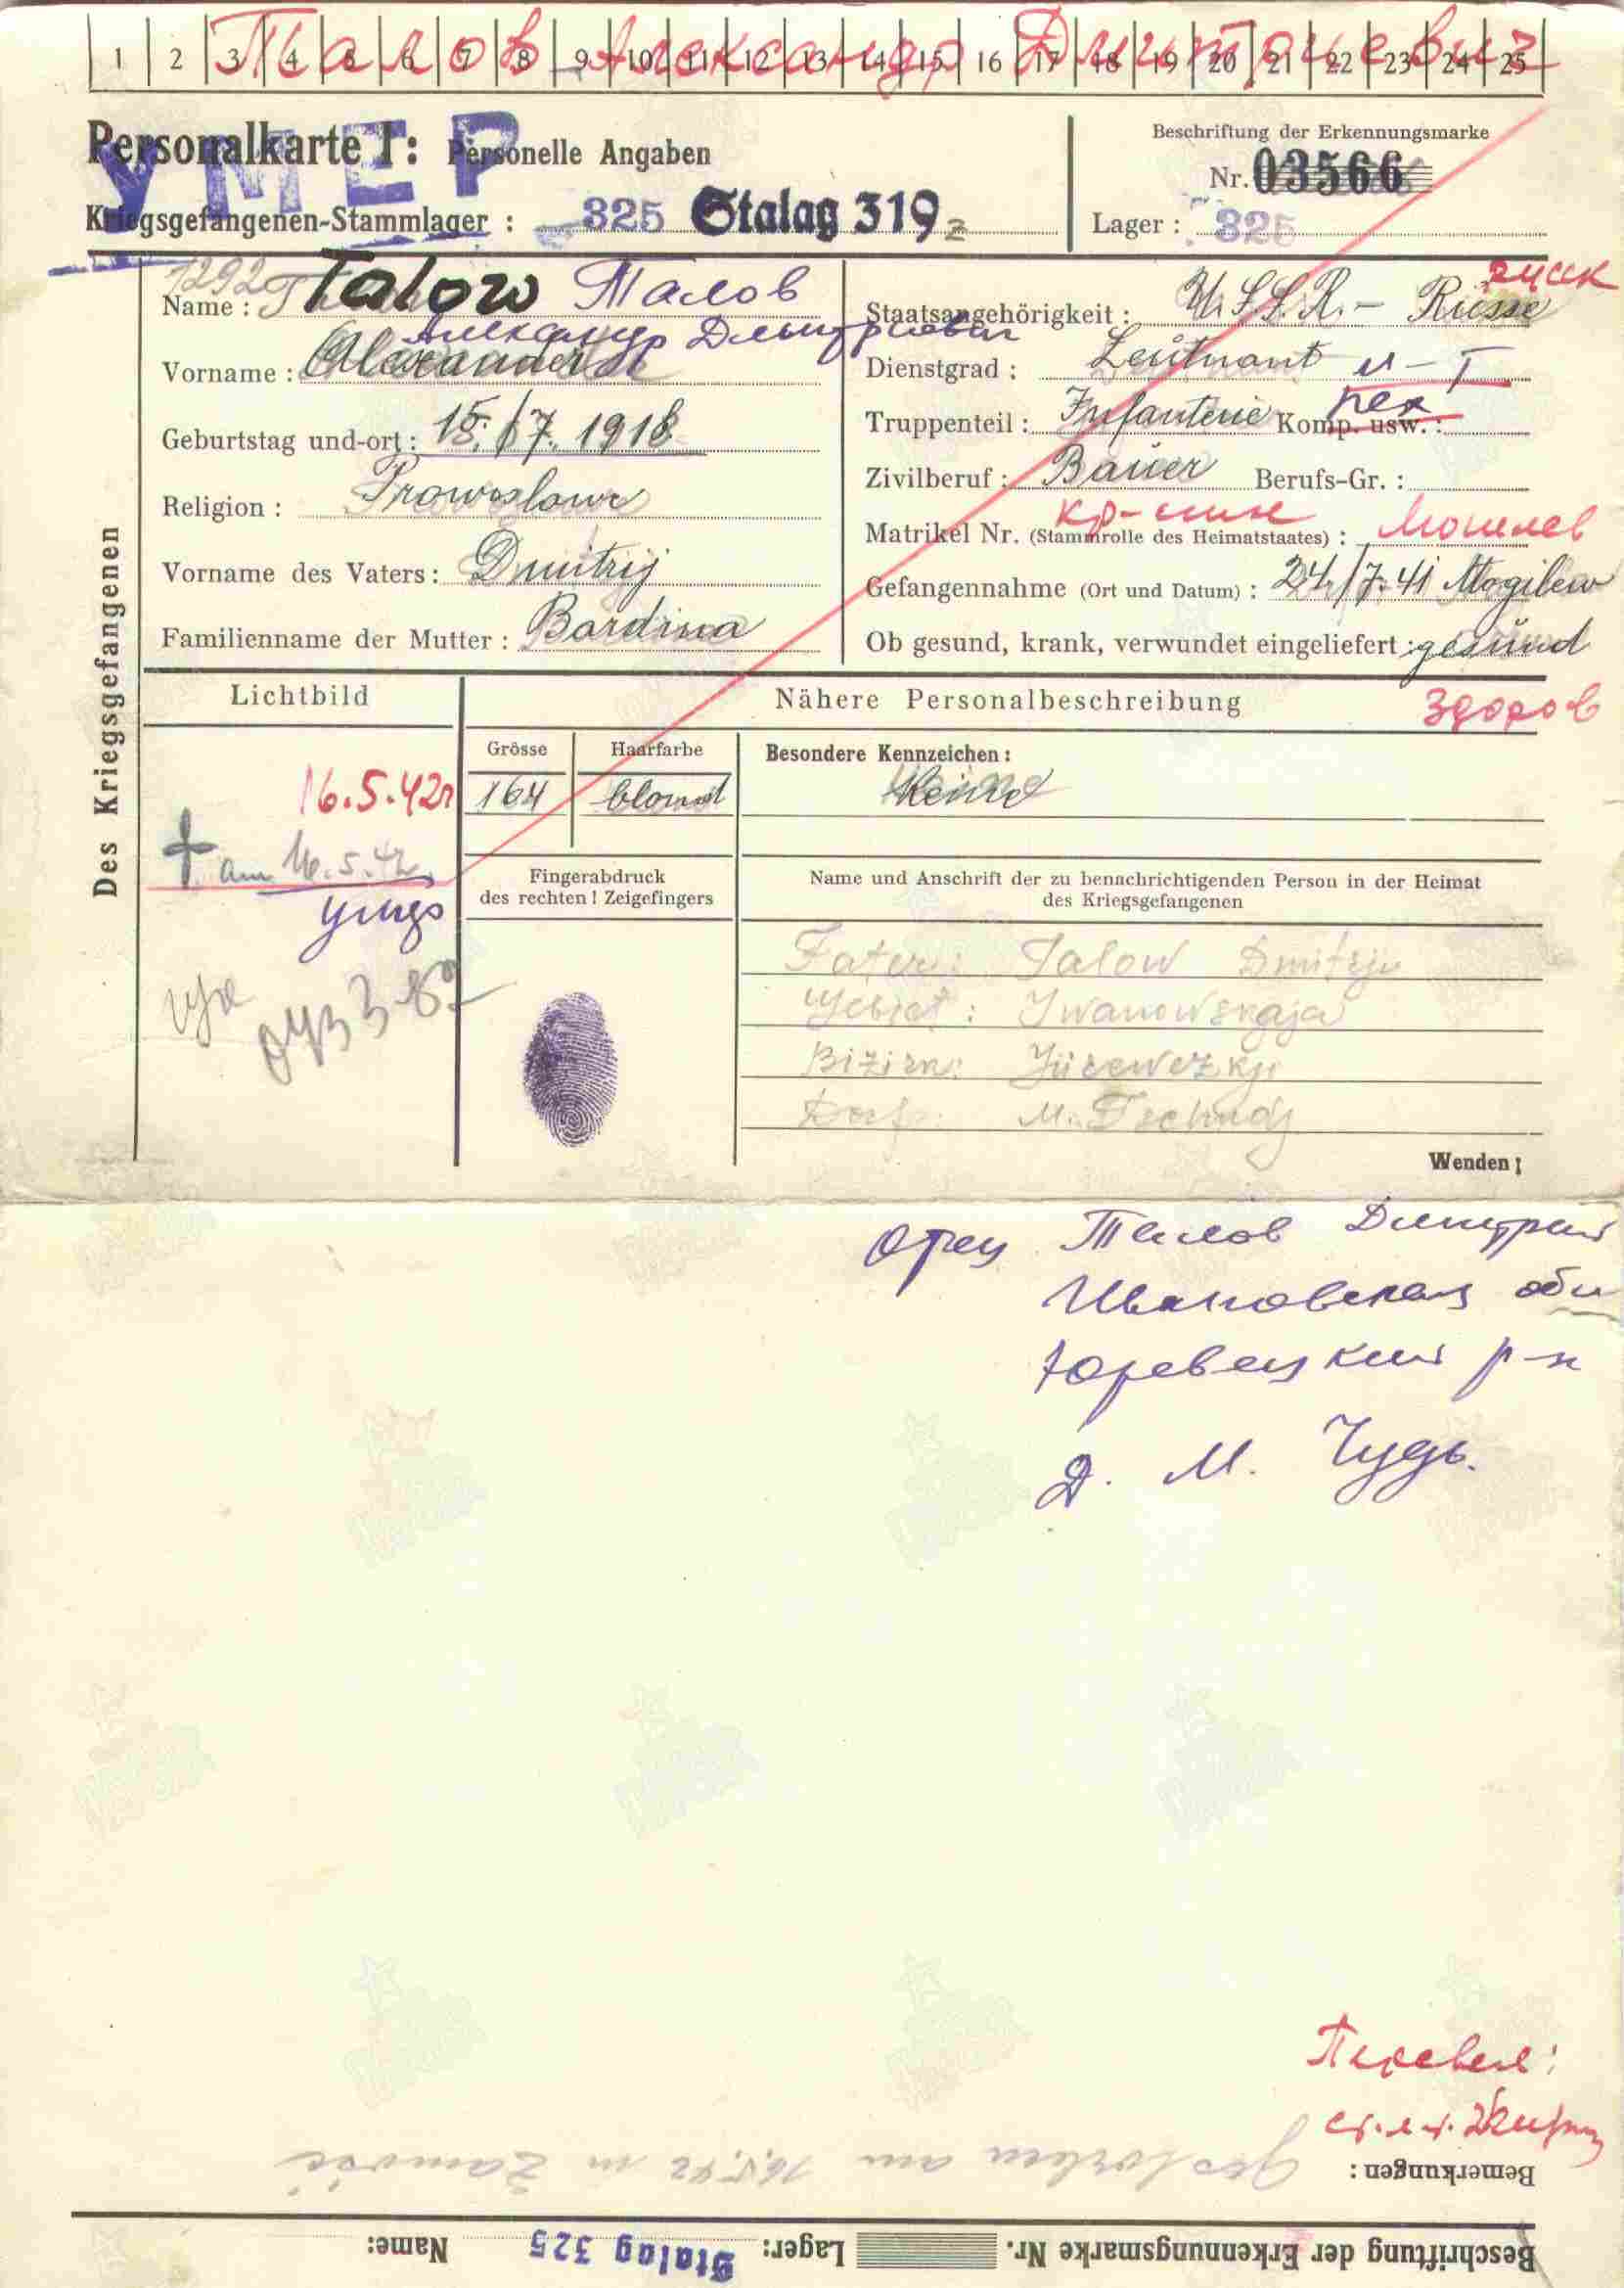 1 2 3 4 5 6 7 8 9 10 11 12 13 14 15 16 17 18 19 20 21 22 23 24 25
Талов Александр Дмитриевич
Personalkarte I: Personelle Angaben
УМЕР
Beschriftung der Erkennungsmarke
Nr. 03566
Kriegsgefangenen-Stammlager: 325 Stalag 319
Lager: 325
Des Kriegsgefangenen
Name: Talow Талов
Александр Дмитриевич
Vorname: Alexander
Geburtstag und-ort: 15./7. 1918.
Religion: Prowoslowe
Vorname des Vaters: Dmitrij
Familienname der Mutter: Bardina
русск
Staatsangehörigkeit: U.S.S.R. – Russe
Dienstgrad: Leutnant л-т
Truppenteil: Infanterie Komp. usw.:
пех
Zivilberuf: Bauer Berufs-Gr.:
кр-нин
Matrikel Nr. (Stammrolle des Heimatstaates): Могилев
Gefangennahme (Ort und Datum): 24/7.41 Mogilew
Ob gesund, krank, verwundet eingeliefert: gesund
здоров
Lichtbild
16.5.42г
am 16.5.42
умер
Nähere Personalbeschreibung
Grösse
164
Haarfarbe
blond
Besondere Kennzeichen:
Keine
Fingerabdruck
des rechten! Zeigefingers
Name und Anschrift der zu benachrichtigenden Person in der Heimat
des Kriegsgefangenen
Fater: Talow Dmitrju
Gebiet: Iwanowskaja
Bizirk: Jürewezkji
Dorf: M. Tschudj
Wenden!
Отец Талов Дмитрий
Ивановская обл
Юревецкий р-н
Д. М. Чудь.
Перевел:
ст. л-т.
Bemerkungen: Gestorben am 16.5.42 in Zamosc
Beschriftung der Erkennungsmarke Nr. Lager: Stalag 325 Name: